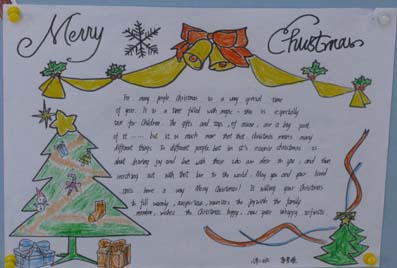 Merry Christmas
For many people Christmas is a very special time
of year. It is a time filled with magic - this is especially
true for Children. The gifts and toys, of course, are a big part
of it ...... but it is much more than that. Christmas means many
different things to different people but in it's essence christmas is
about sharing joy and love with those who are dear to you, and then
reaching out with that love to the world. May you and your loved
ones have a very Merry Christmas! Is wishing your Christmas
to fill warmly, auspicious, reunion the joy with the family
member, wishes the Christmas happy, new year happy